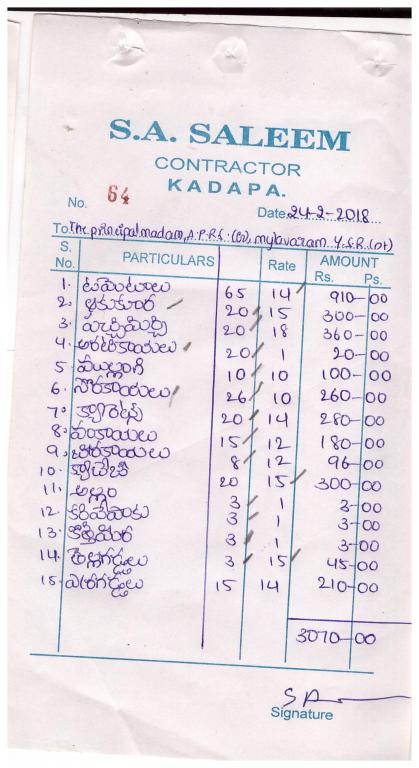 S.A. SALEEM
CONTRACTOR
KADAPA.
No. 64
Date 24-2-2018
To The principal madam, A.P.R.S. (G), mylavaram. Y.S.R (Dt)
S. No. PARTICULARS Rate AMOUNT Rs. Ps.
1. టమెటాలు 65 14 910-00
2. ఆకుకూర 20 15 300-00
3. పచ్చిమిర్చి 20 18 360-00
4. అరటికాయలు 20 1 20-00
5 ముల్లంగి 10 10 100-00
6. సొరకాయలు 26 10 260-00
7. క్యారెట్స్ 20 14 280-00
8. వంకాయలు 15 12 180-00
9. బీరకాయలు 8 12 96-00
10. క్యాబేజి 20 15 300-00
11. అల్లం 3 1 3-00
12 కరివేపాకు 3 1 3-00
13. కొత్తిమీర 3 1 3-00
14. తెల్లగడ్డలు 3 15 45-00
15. ఎర్రగడ్డలు 15 14 210-00
3070-00
Signature